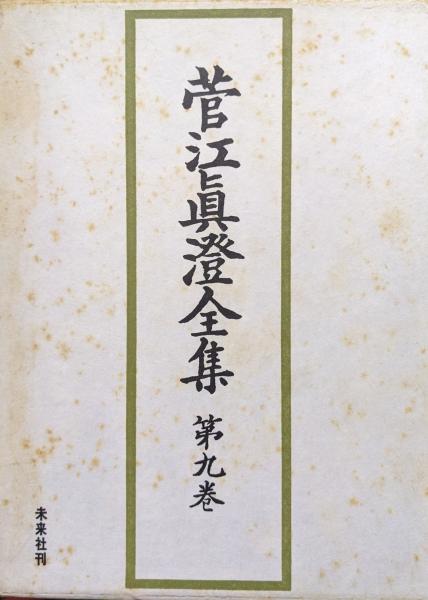 菅江眞澄全集 第九巻
未来社刊